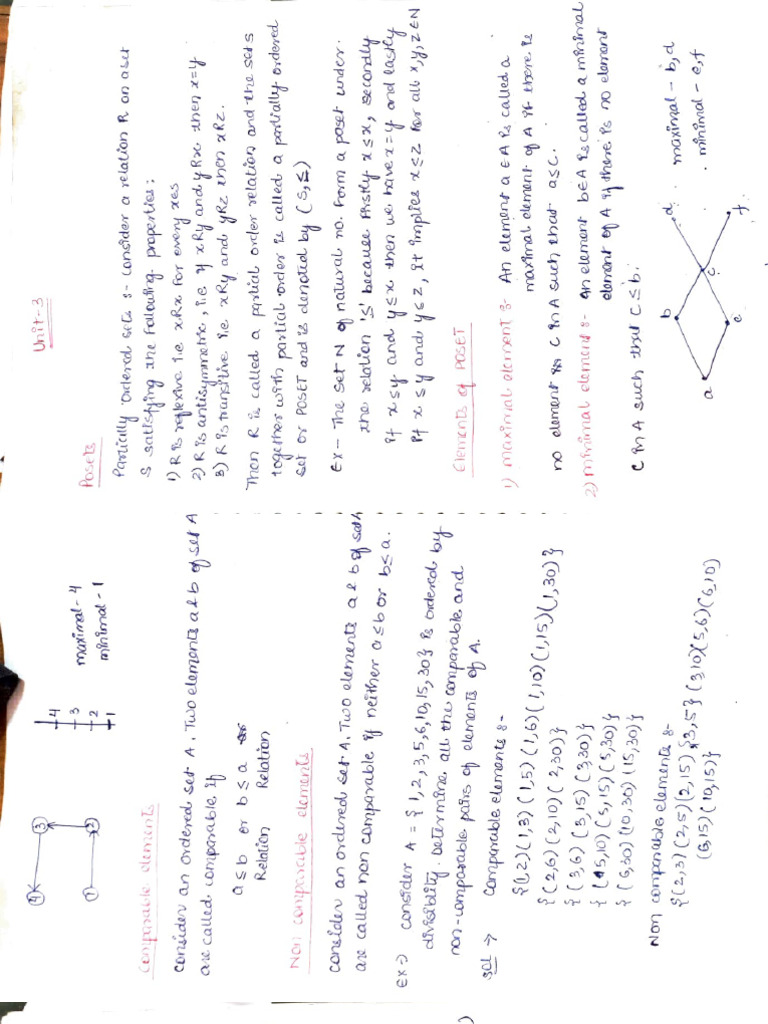 Unit-3
Posets
Partially ordered sets :- consider a relation R on a set
S satisfying the following properties:
1) R is reflexive i.e xRx for every x∈S
2) R is antisymmetric, i.e if xRy and yRx then x=y
3) R is transitive i.e xRy and yRz then xRz.
Then R is called a partial order relation and the set S
together with partial order is called a partially ordered
set or POSET and is denoted by (S,≤)
Ex- The set N of natural no. form a poset under.
the relation '≤' because firstly x≤x, secondly
if x≤y and y≤x then we have x=y and lastly
if x≤y and y≤z, it implies x≤z for all x,y,z∈N
Elements of POSET
1) maximal element :- An element a∈A is called a
maximal element of A if there is
no element in c in A such that a≤c.
2) minimal element :- An element b∈A is called a minimal
element of A if there is no element
c in A such that c≤b.
a
b
e
c
d
f
maximal - b,d
minimal - e,f
4
3
1
2
4
3
2
1
maximal-4
minimal-1
Comparable elements
consider an ordered set A. Two elements a & b of set A
are called comparable if
a≤b or b≤a
Relation Relation
Non comparable elements
consider an ordered set A. Two elements a & b of set A
are called non comparable if neither a≤b or b≤a.
Ex→ consider A = {1,2,3,5,6,10,15,30} is ordered by
divisiblity. Determine all the comparable and
non-comparable pairs of elements of A.
sol → Comparable elements :-
{(1,2)(1,3)(1,5)(1,6)(1,10)(1,15)(1,30)}
{(2,6)(2,10)(2,30)}
{(3,6)(3,15)(3,30)}
{(5,10)(5,15)(5,30)}
{(6,30)(10,30)(15,30)}
Non comparable elements :-
{(2,3)(2,5)(2,15){3,5}(3,10)(5,6)(6,10)
(6,15)(10,15)}